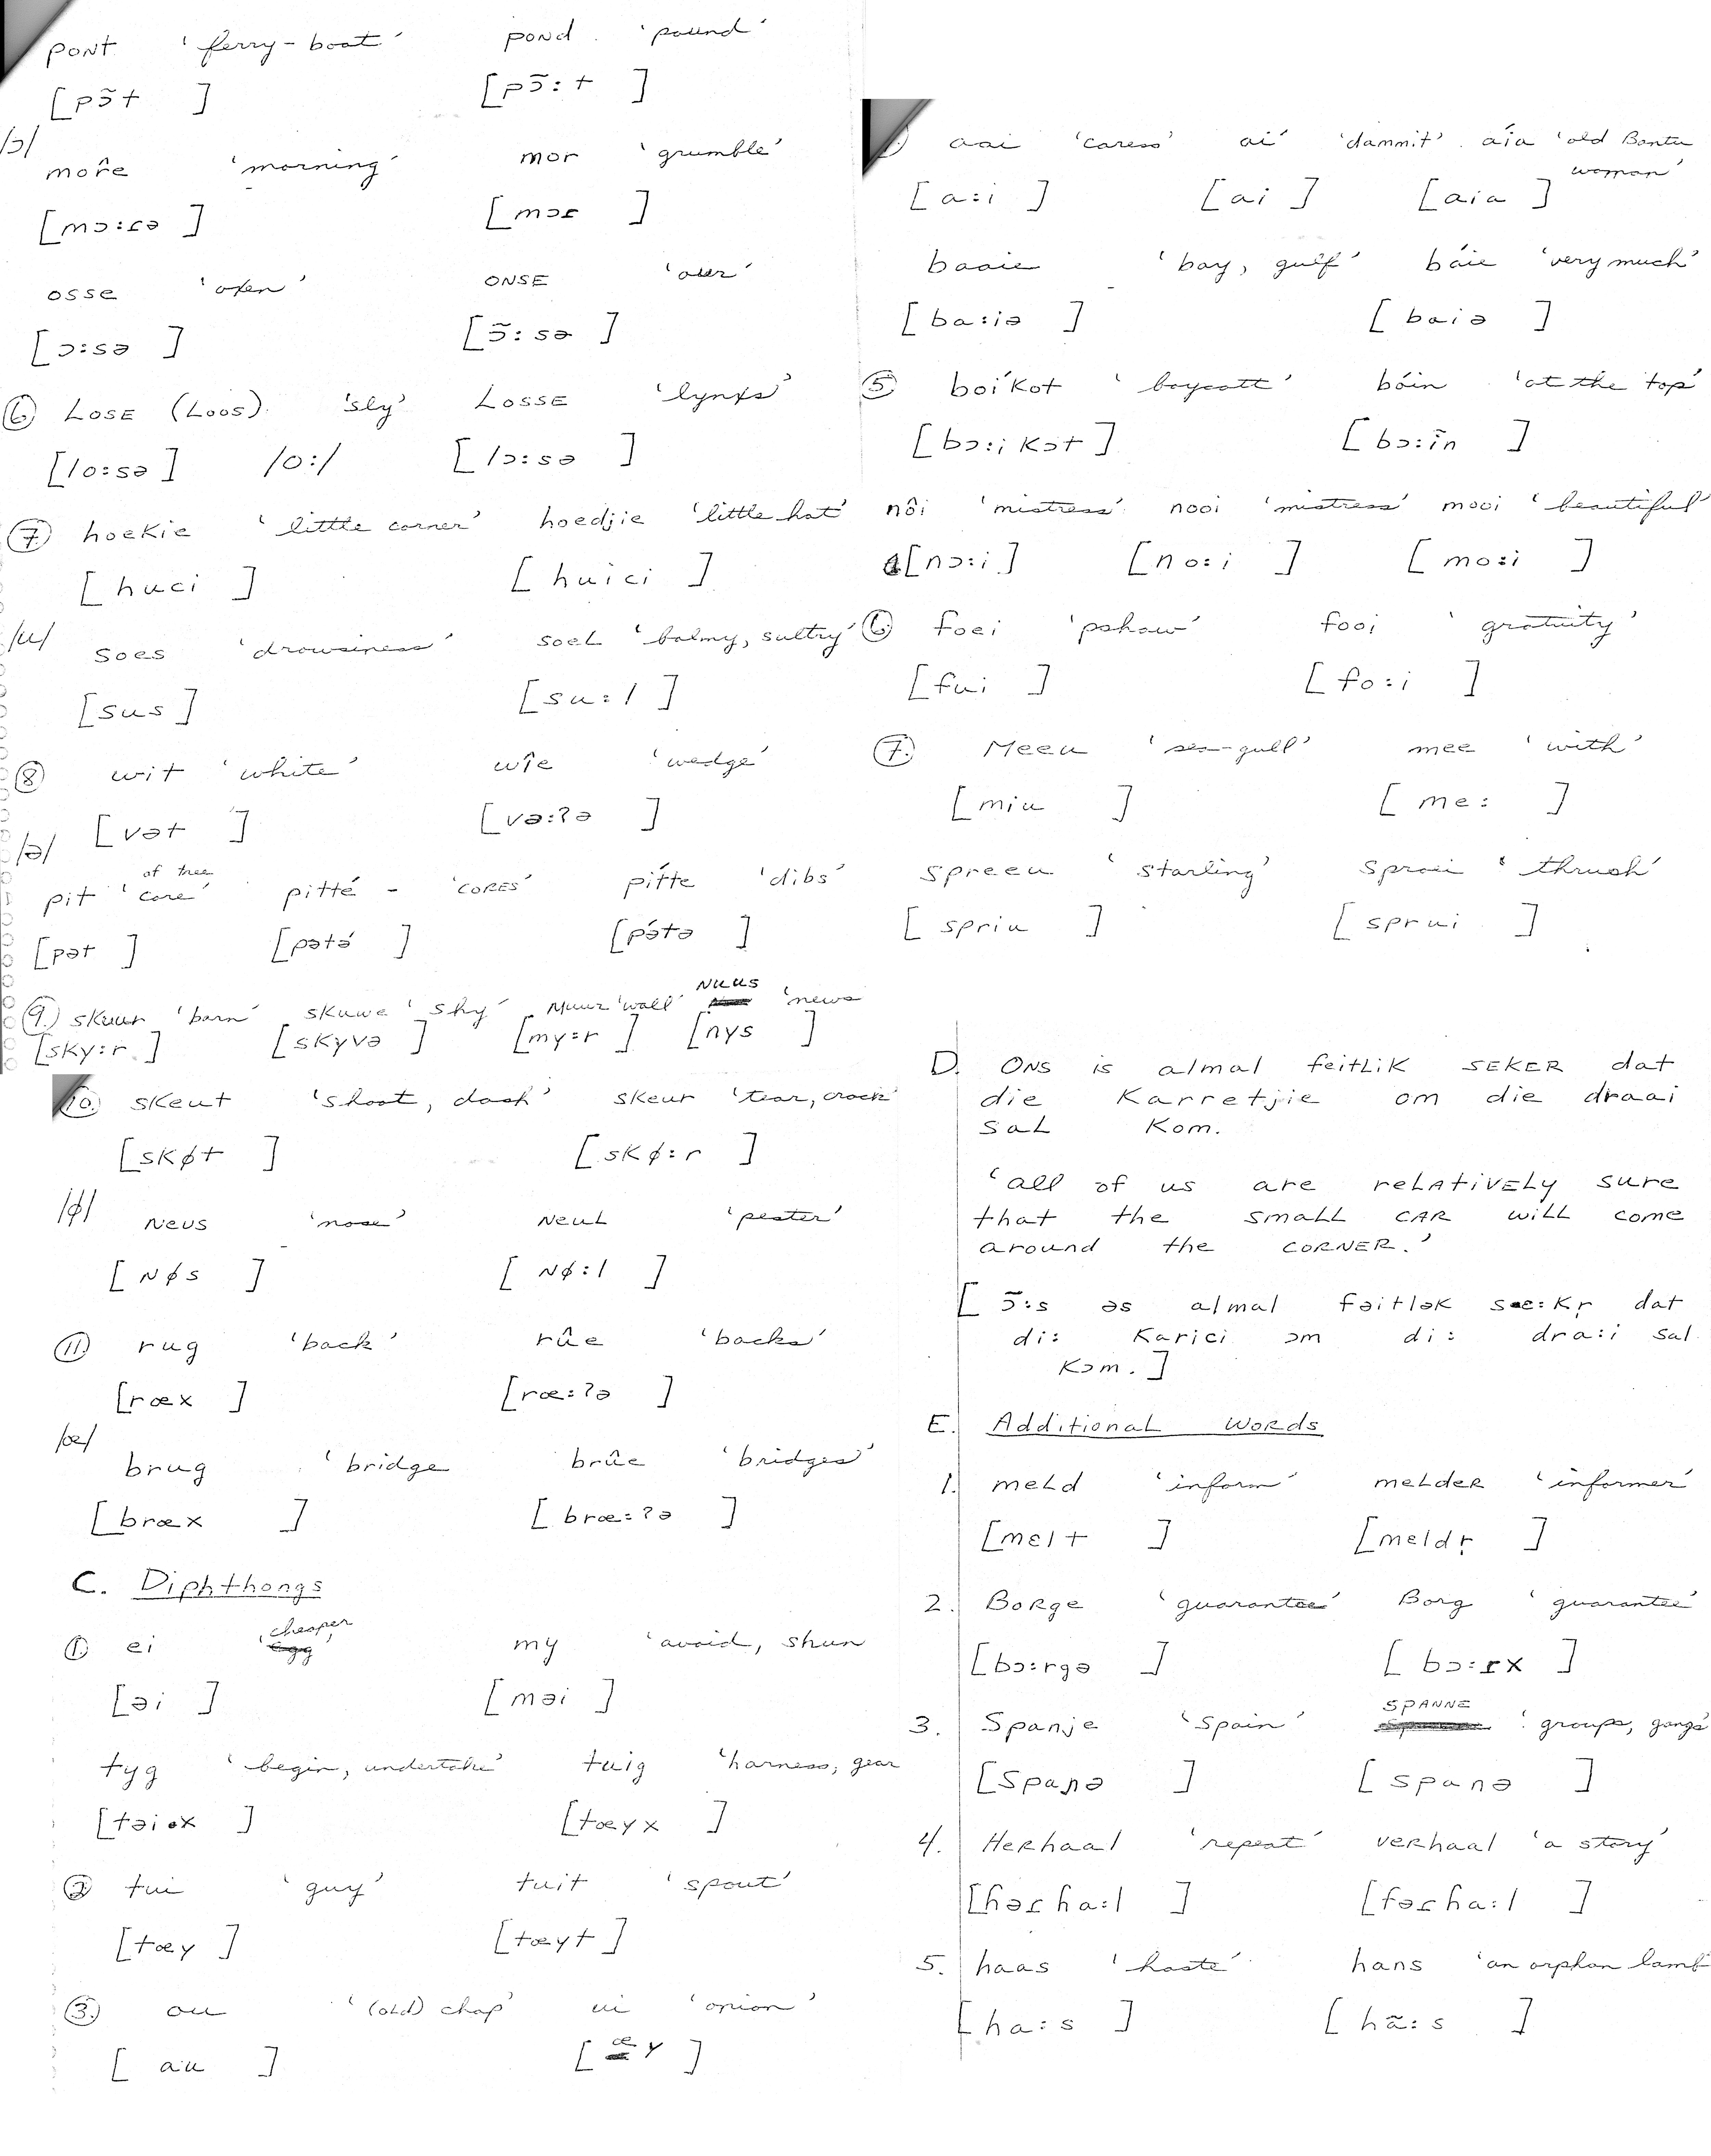 pont 'ferry-boat' pond 'pound'
[pɔ̃t ] [pɔ̃:t ]
/ɔ/
môre 'morning' mor 'grumble'
[mɔ:ɾə ] [mɔɾ ]
osse 'oxen' ONSE 'our'
[ɔ:sə ] [ɔ̃:sə ]
⑥ LOSE (LOOS) 'sly' LOSSE 'lynxs'
[lo:sə] /o:/ [lɔ:sə ]
⑦ hoekie 'little corner' hoedjie 'little hat'
[huci ] [huici ]
/u/ soes 'drowsiness' soel 'balmy, sultry'
[sus] [su:l ]
⑧ wit 'white' wîe 'wedge'
[vət ] [və:ʔə ]
/ə/
pit 'core of tree' pitté - 'CORES' pítte 'dibs'
[pət ] [pətə́ ] [pə́tə ]
⑨ skuur 'barn' skuwe 'shy' Muur 'wall' NUUS 'news
[sky:r ] [skyvə ] [my:r ] [nys ]
⑩ skeut 'shoot, dash' skeur 'tear, crack'
[skøt ] [skø:r ]
/ø/ neus 'nose' neul 'pester'
[nøs ] [nø:l ]
⑪ rug 'back' rûe 'backs'
[rœx ] [rœ:ʔə ]
/œ/
brug 'bridge brûe 'bridges'
[brœx ] [brœ:ʔə ]
C. Diphthongs
① ei 'cheaper' my 'avoid, shun
[əi ] [məi ]
tyg 'begin, undertake' tuig 'harness, gear
[təix ] [tœyx ]
② tui 'guy' tuit 'spout'
[tœy ] [tœyt ]
③ ou '(old) chap' ui 'onion'
[au ] [œy ]
aai 'caress' ai 'dammit' aía 'old Bantu woman'
[a:i ] [ai ] [aia ]
baaie 'bay, gulf' báie 'very much'
[ba:iə ] [baiə ]
⑤ boíkot 'boycott' bóin 'at the top'
[bɔ:ikɔt ] [bɔ:ĩn ]
nôi 'mistress' nooi 'mistress' mooi 'beautiful'
[nɔ:i ] [no:i ] [mo:i ]
⑥ foei 'pshaw' fooi 'gratuity'
[fui ] [fo:i ]
⑦ Meeu 'sea-gull' mee 'with'
[miu ] [me: ]
spreeu 'starling' sproei 'thrush'
[spriu ] [sprui ]
D. ONS is almal feitlik SEKER dat
die Karretjie om die draai
sal kom.
'all of us are relatively sure
that the small car will come
around the corner.'
[ɔ̃:s əs almal fəitlək se:kr̩ dat
di: karici ɔm di: dra:i sal
kɔm.]
E. Additional Words
1. meld 'inform' melder 'informer'
[mɛlt ] [mɛldr̩ ]
2. Borge 'guarantee' Borg 'guarantee'
[bɔ:rgə ] [bɔ:ɾx ]
3. Spanje 'Spain' SPANNE 'groups, gangs'
[spaɲə ] [spanə ]
4. Herhaal 'repeat' verhaal 'a story'
[həɾha:l ] [fəɾha:l ]
5. haas 'haste' hans 'an orphan lamb'
[ha:s ] [hã:s ]